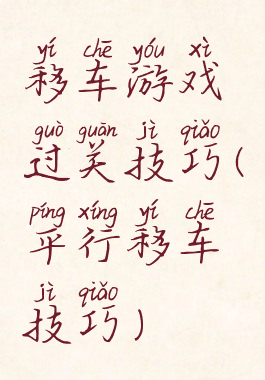 yí chē yóu xì
移车游戏
guò guān jì qiǎo
过关技巧(
píng xíng yí chē
平行移车
jì qiǎo
技巧)